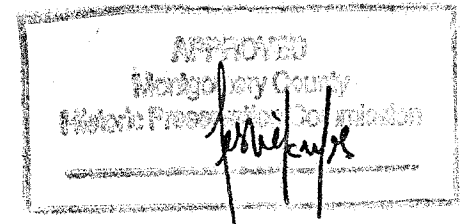 APPROVED
Montgomery County
Historic Preservation Commission